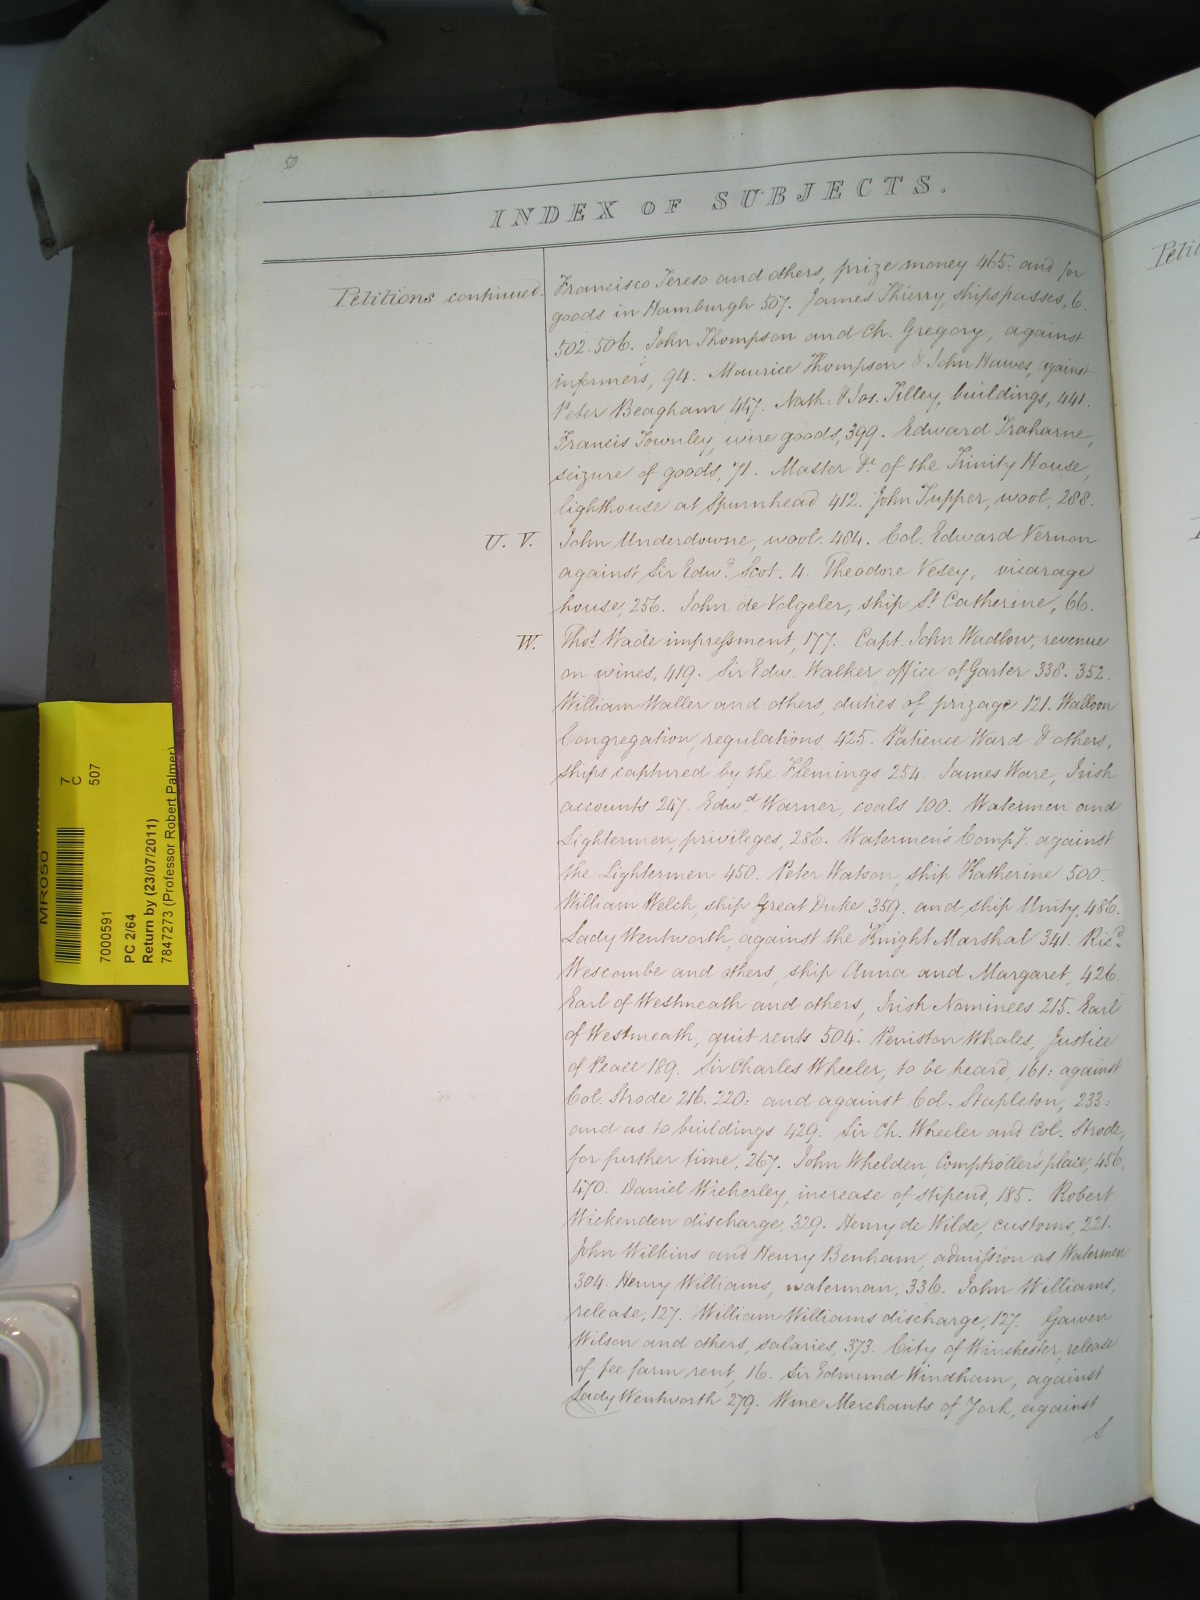 50
INDEX OF SUBJECTS.
Petitions continued.
Francisco Tereso and others, prize money 465: and for
goods in Hamburgh 507. James Thierry, ships passes, 6.
502. 506. John Thompson and Ch. Gregory, against
informers, 94. Maurice Thompson & John Hawes, against
Peter Beagham 447. Nath: & Jos. Tilley, buildings, 441.
Francis Townley, wire goods, 399. Edward Traharne,
seizure of goods, 71. Master &c. of the Trinity House,
lighthouse at Spurnhead 412. John Tupper, wool, 288.
U. V. John Underdowne, wool. 484. Col. Edward Vernon
against Sir Edwd. Scot. 4. Theodore Vesey, vicarage
house, 256. John de Volgeler, ship St. Catherine, 66.
W. Thos. Wade impressment, 177. Capt. John Wadlow, revenue
on wines, 419. Sir Edw. Walker office of Garter 338. 352.
William Waller and others, duties of prizage 121. Walloon
Congregation, regulations 425. Patience Ward & others,
ships captured by the Flemings 254. James Ware, Irish
accounts 247. Edwd. Warner, coals 100. Watermen and
Lightermen, privileges, 286. Watermen's Compy. against
the Lightermen 450. Peter Watson, ship Katherine 500.
William Welch, ship Great Duke 359. and ship Unity, 486.
Lady Wentworth, against the Knight Marshal 341. Ricd.
Wescombe and others, ship Anna and Margaret, 426.
Earl of Westmeath and others, Irish Nominees 215. Earl
of Westmeath, quit rents 504. Peniston Whales, Justice
of Peace 189. Sir Charles Wheeler, to be heard, 161: against
Col. Strode 216. 220: and against Col. Stapleton, 233:
and as to buildings 429. Sir Ch. Wheeler and Col. Strode,
for further time, 267. John Whelden, Comptroller's place, 456,
470. Daniel Wicherley, increase of stipend, 185. Robert
Wickenden discharge, 329. Henry de Wilde, customs, 221.
John Wilkins and Henry Benham, admission as Watermen
304. Henry Williams, waterman, 336. John Williams,
release, 127. William Williams discharge, 127. Gawen
Wilson and others, salaries, 373. City of Winchester, release
of fee farm rent, 16. Sir Edmund Windham, against
Lady Wentworth 279. Wine Merchants of York, against
MR050
7
C
507
7000591
PC 2/64
Return by (23/07/2011)
7847273 (Professor Robert Palmer)